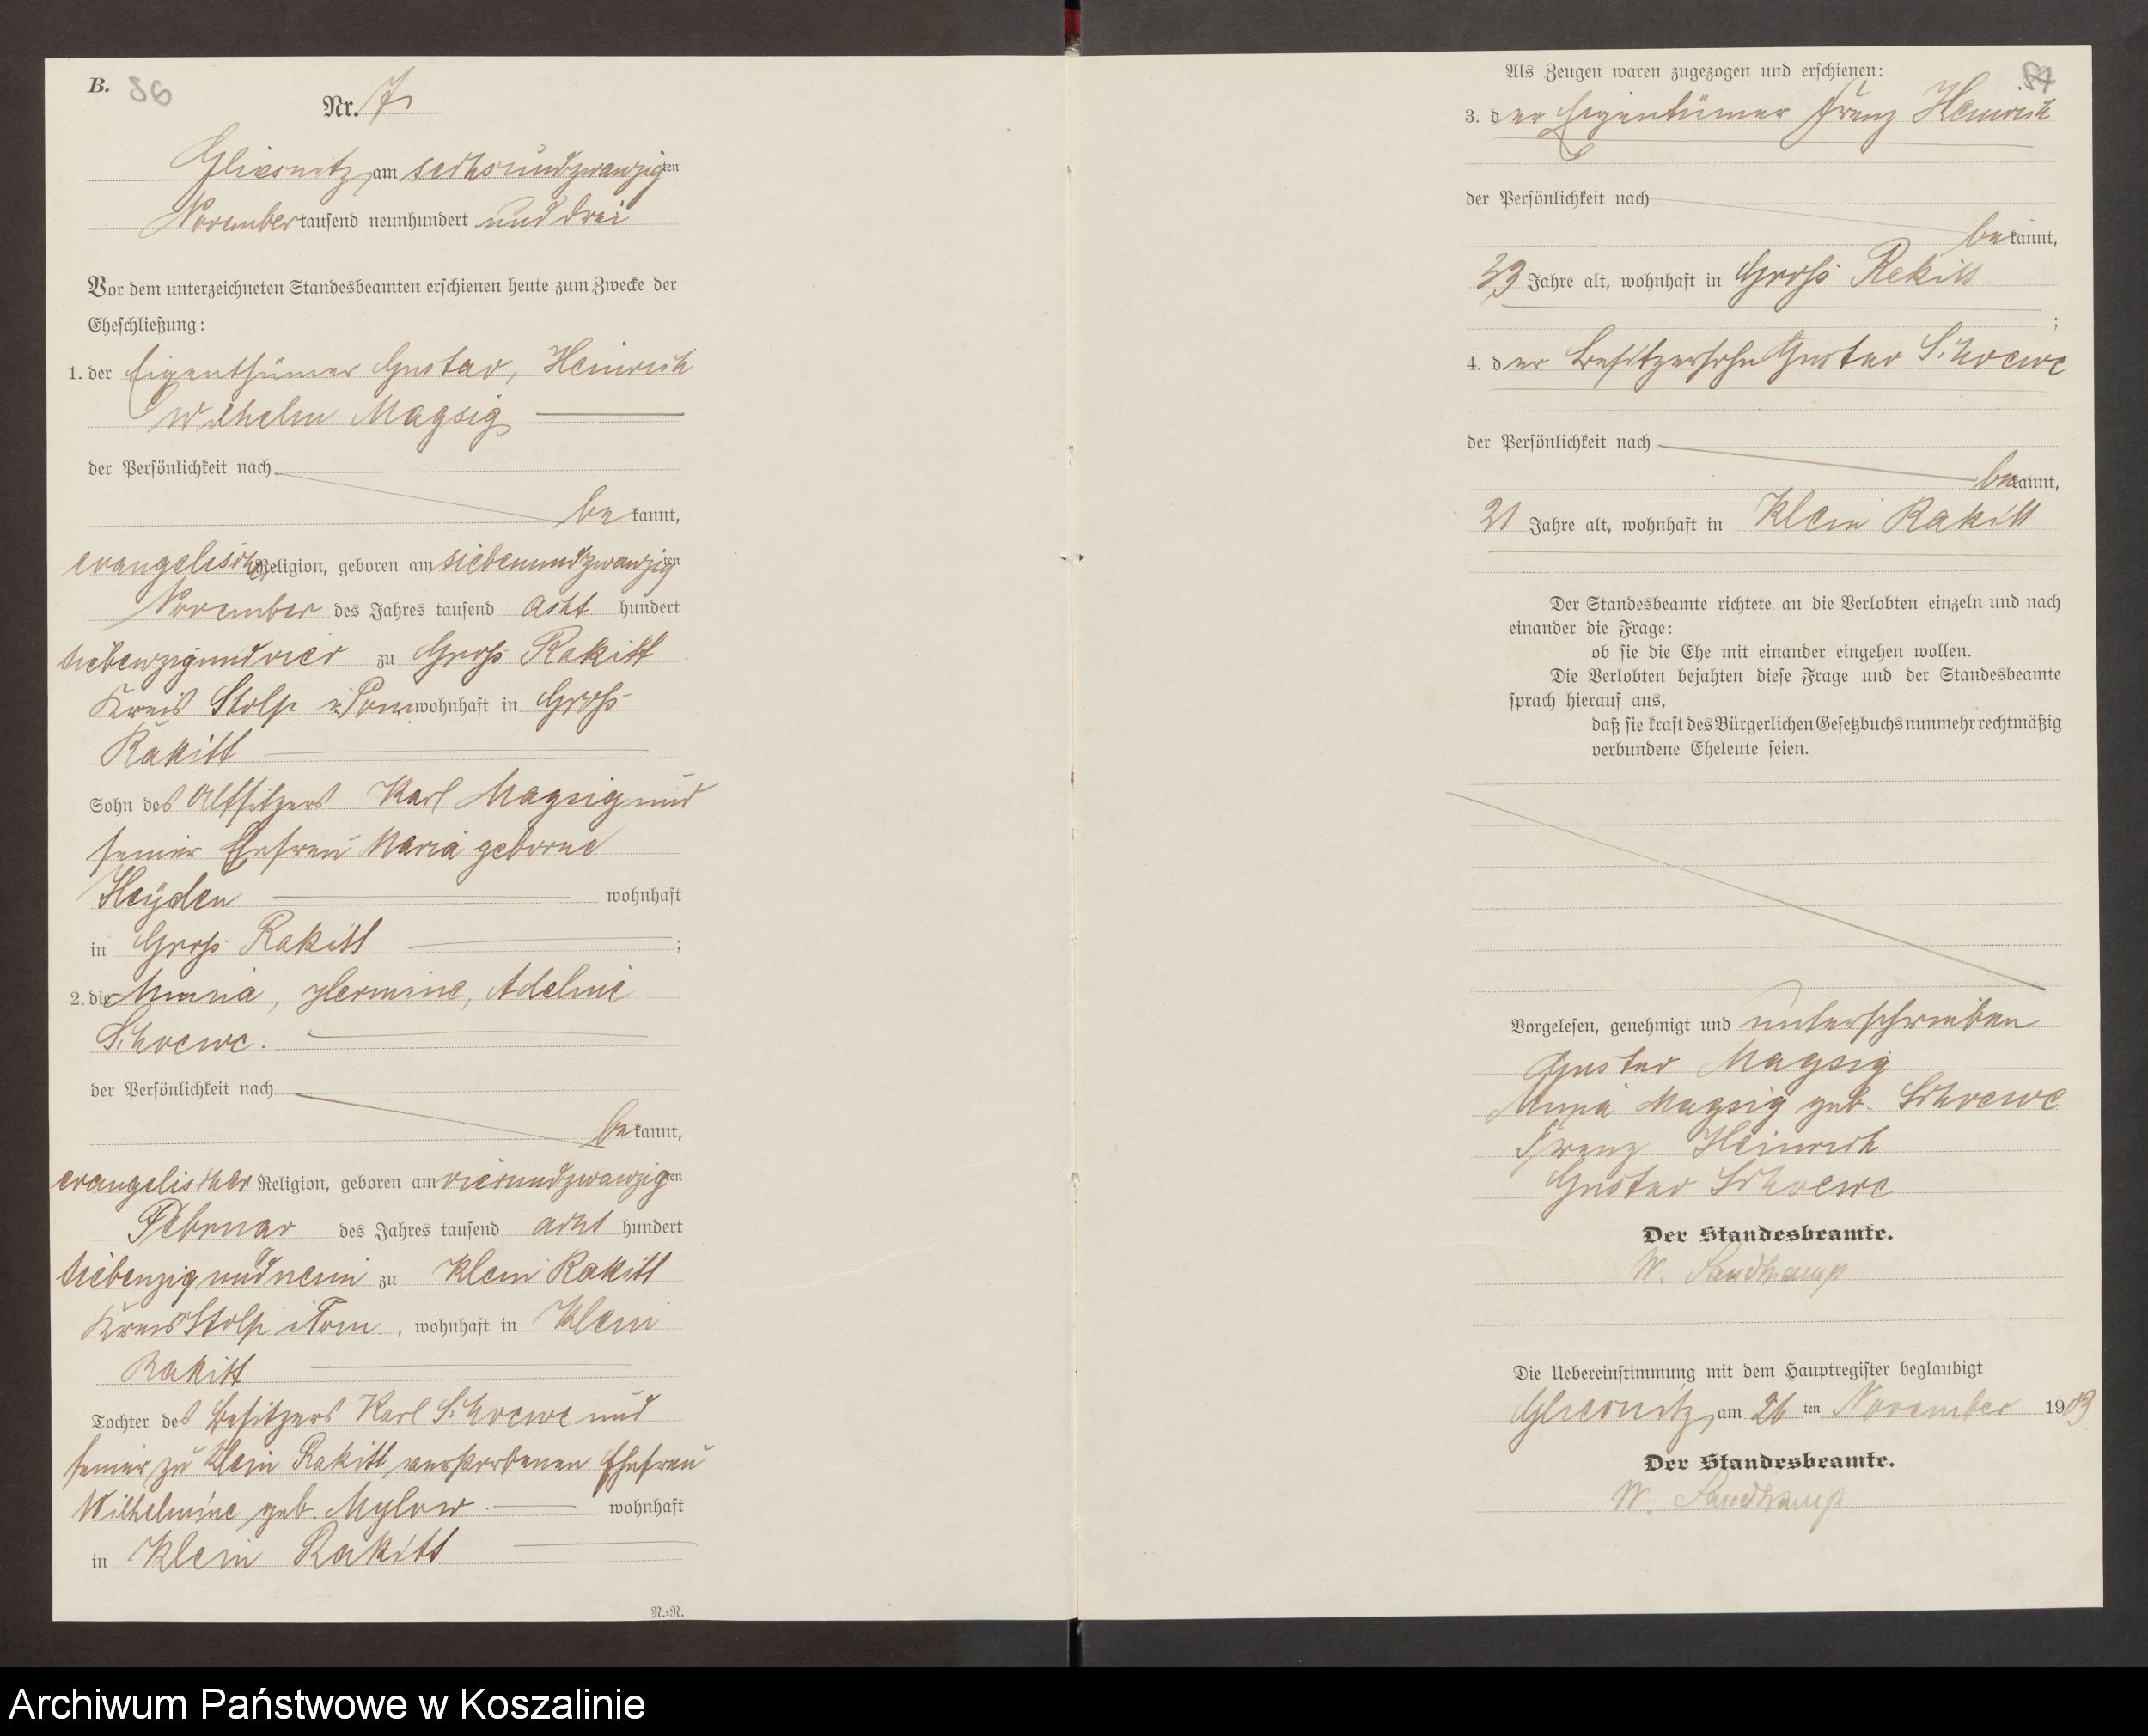 B. 86
Nr. 7
Gliesnitz, am sechsundzwanzigten
November tausend neunhundert und drei
Vor dem unterzeichneten Standesbeamten erschienen heute zum Zwecke der
Eheschließung:
1. der Eigenthümer Gustav, Heinrich
Wilhelm Magsig
der Persönlichkeit nach
bekannt,
evangelischer Religion, geboren am siebenundzwanzigten
November des Jahres tausend acht hundert
siebenzigundvier zu Groß Rakitt
Kreis Stolp i. Pom wohnhaft in Groß
Rakitt
Sohn des Altsitzers Karl Magsig und
seiner Ehefrau Maria geborne
Heyden wohnhaft
in Groß Rakitt ;
2. die Anna, Hermine, Adeline
Schoewe.
der Persönlichkeit nach
bekannt,
evangelischer Religion, geboren am vierundzwanzigten
Februar des Jahres tausend acht hundert
siebenzigundneun zu Klein Rakitt
Kreis Stolp i Pom, wohnhaft in Klein
Rakitt
Tochter des Besitzers Karl Schoewe und
seiner zu Klein Rakitt verstorbenen Ehefrau
Wilhelmine geb. Mylow wohnhaft
in Klein Rakitt
N.=R.
87
Als Zeugen waren zugezogen und erschienen:
3. der Eigentümer Franz Heinrich
der Persönlichkeit nach
bekannt,
Jahre alt, wohnhaft in Groß Rakitt
;
4. der Besitzersohn Gustav Schoewe
der Persönlichkeit nach
bekannt,
21 Jahre alt, wohnhaft in Klein Rakitt
Der Standesbeamte richtete an die Verlobten einzeln und nach
einander die Frage:
ob sie die Ehe mit einander eingehen wollen.
Die Verlobten bejahten diese Frage und der Standesbeamte
sprach hierauf aus,
daß sie kraft des Bürgerlichen Gesetzbuchs nunmehr rechtmäßig
verbundene Eheleute seien.
Vorgelesen, genehmigt und unterschrieben
Gustav Magsig
Anna Magsig geb. Schoewe
Franz Heinrich
Gustav Schoewe
Der Standesbeamte.
W. Sandkamp
Die Uebereinstimmung mit dem Hauptregister beglaubigt
Gliesnitz, am 26 ten November 1903
Der Standesbeamte.
W. Sandkamp
Archiwum Państwowe w Koszalinie